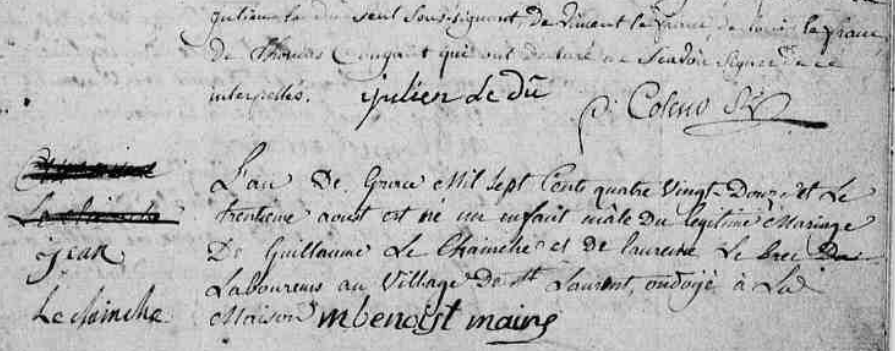 julien le du seul soussignant, de vincent le
de Thomas qui ont declaré ne scavoir signer de ce
interpellés. julien Le dû
Coleno
Jean
Le chainche
L'an De Grace Mil Sept Cents quatre Vingt-Douze et Le
trentieme aoust est né un enfant mâle Du legitime Mariage
De Guillaume Le Chainche et de laurence Le brec
Laboureurs au Village De St Laurent, ondoyé à La
Maison mbenoist maire